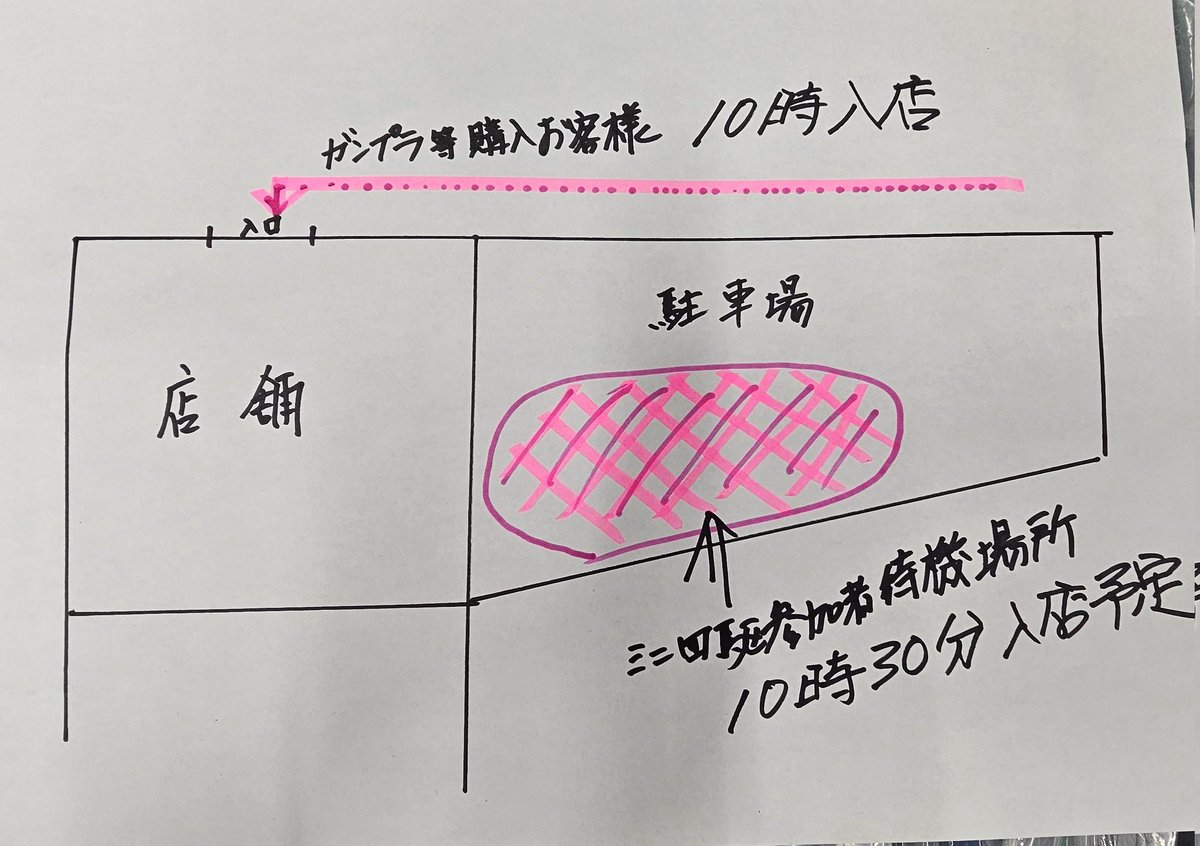 ガンプラ等購入お客様 10時入店
入口
駐車場
店舗
ミニ四駆参加者待機場所
10時30分入店予定